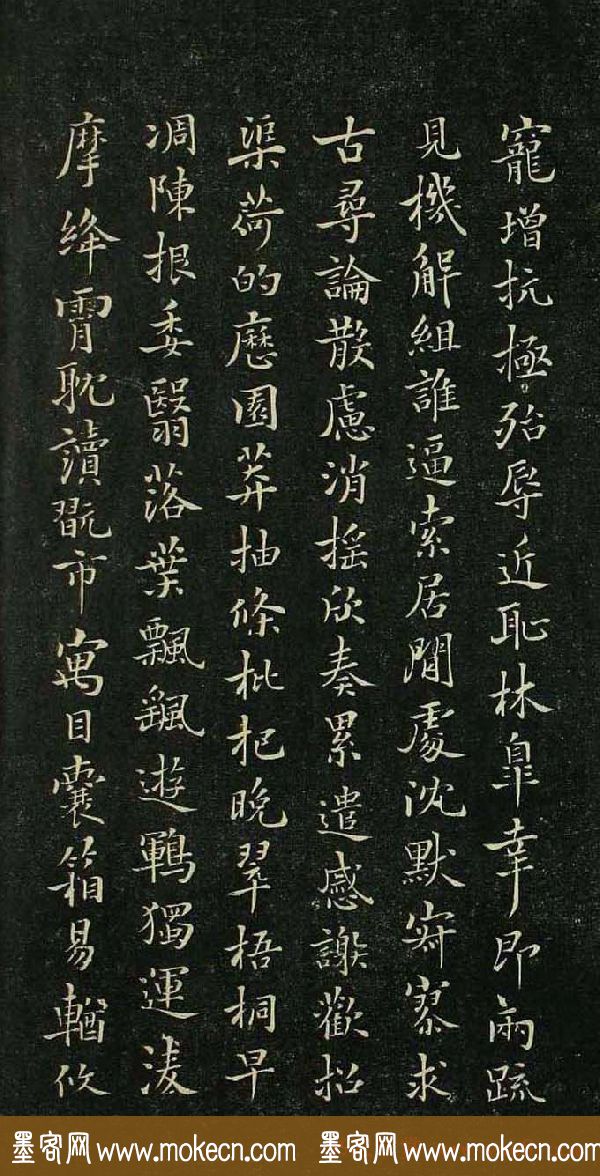 寵增抗極殆辱近恥林皐幸即兩疏
見機解組誰逼索居閒處沈默寂寥求
古尋論散慮消搖欣奏累遣慼謝歡招
渠荷的歷園莽抽條枇杷晚翠梧桐早
凋陳根委翳落葉飄颻遊鵾獨運淩
摩絳霄耽讀翫市寓目囊箱易輶攸
墨客网 www.mokecn.com 墨客网 www.mokecn.com